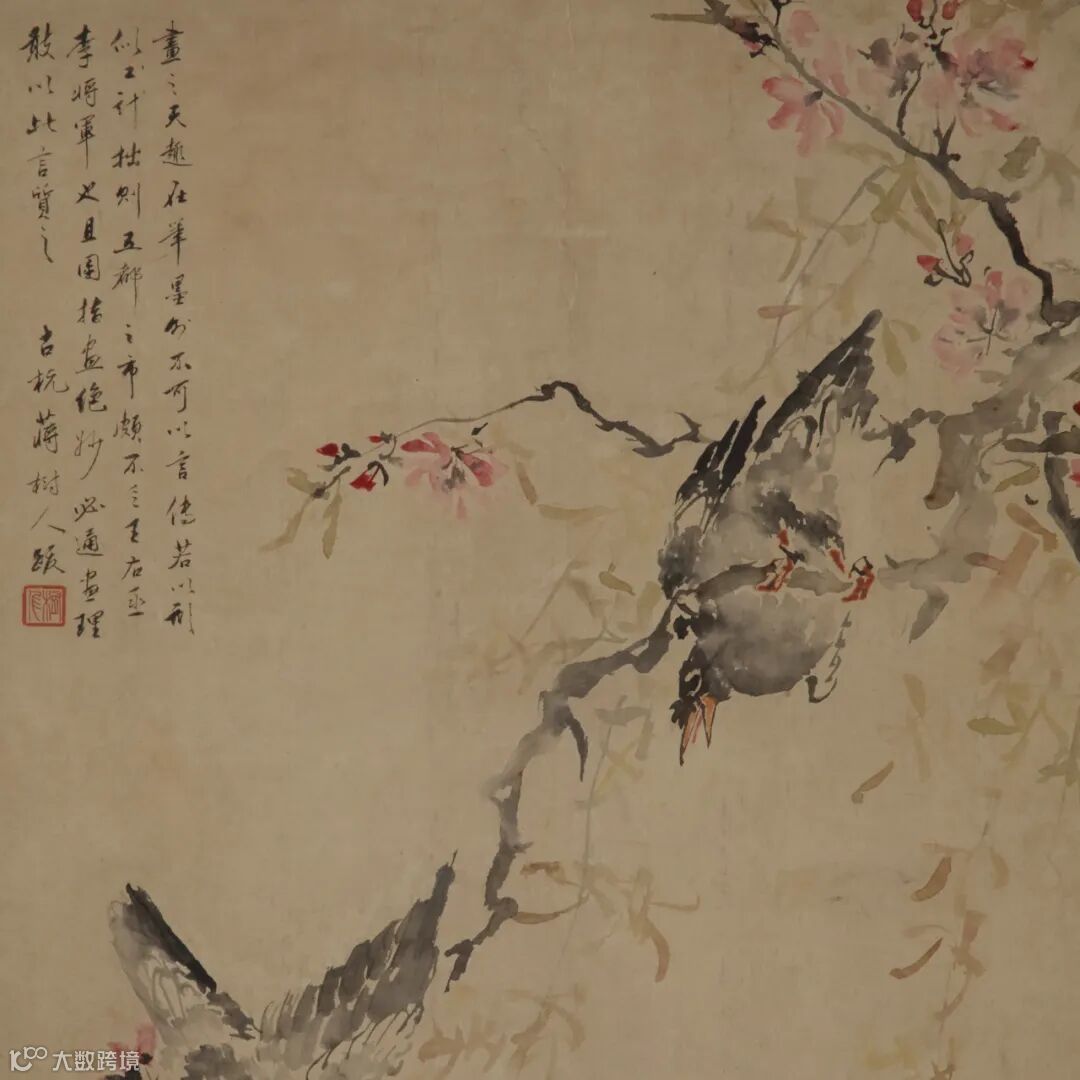 畫之天趣在筆墨外不可以言傳若以形
似工計拙則五都之市頗不乏王右丞
李將軍也且園指畫絕妙必通畫理
敢以此言質之 古杭蔣樹人跋
大数跨境